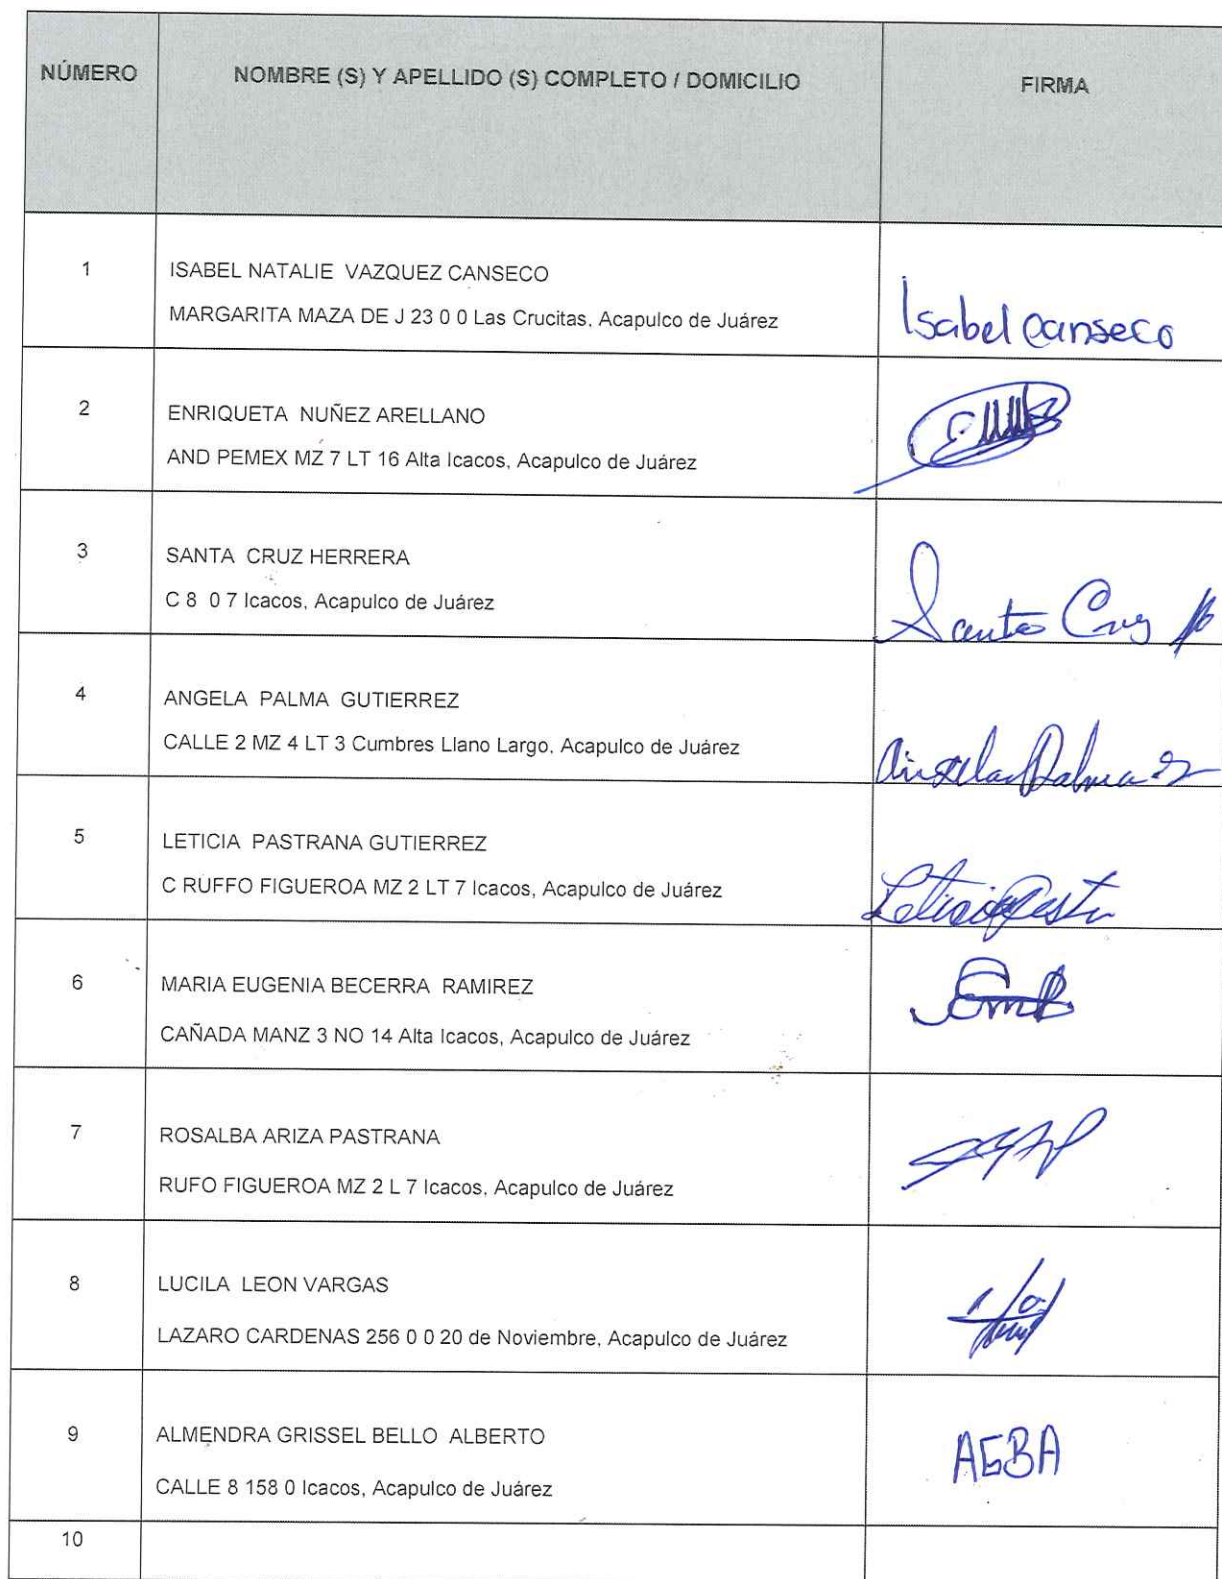 NÚMERO
NOMBRE (S) Y APELLIDO (S) COMPLETO / DOMICILIO
FIRMA
1
ISABEL NATALIE VAZQUEZ CANSECO
MARGARITA MAZA DE J 23 0 0 Las Crucitas, Acapulco de Juárez
Isabel Canseco
2
ENRIQUETA NUÑEZ ARELLANO
AND PEMEX MZ 7 LT 16 Alta Icacos, Acapulco de Juárez
3
SANTA CRUZ HERRERA
C 8 0 7 Icacos, Acapulco de Juárez
Santa Cruz
4
ANGELA PALMA GUTIERREZ
CALLE 2 MZ 4 LT 3 Cumbres Llano Largo, Acapulco de Juárez
Angela Palma
5
LETICIA PASTRANA GUTIERREZ
C RUFFO FIGUEROA MZ 2 LT 7 Icacos, Acapulco de Juárez
Leticia
6
MARIA EUGENIA BECERRA RAMIREZ
CAÑADA MANZ 3 NO 14 Alta Icacos, Acapulco de Juárez
7
ROSALBA ARIZA PASTRANA
RUFO FIGUEROA MZ 2 L 7 Icacos, Acapulco de Juárez
8
LUCILA LEON VARGAS
LAZARO CARDENAS 256 0 0 20 de Noviembre, Acapulco de Juárez
9
ALMENDRA GRISSEL BELLO ALBERTO
CALLE 8 158 0 Icacos, Acapulco de Juárez
AGBA
10